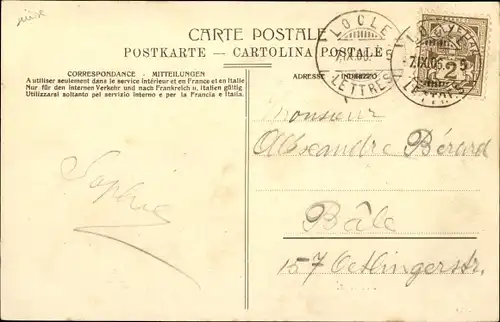 CARTE POSTALE
POSTKARTE — CARTOLINA POSTALE
CORRESPONDANCE - MITTEILUNGEN
A utiliser seulement dans le service intérieur et en France et en Italie
Nur für den internen Verkehr und nach Frankreich u. Italien gültig
Utilizzarsi soltanto pel servizio interno e per la Francia e Italia.
ADRESSE INDIRIZZO
LOCLE
7.IX.05. 5
LETTRES
LOCLE
-7.IX.05. 5
LETTRES
2
Monsieur
Alexandre Bérard
Bâle
157 Oetlingerstr.
Sophie